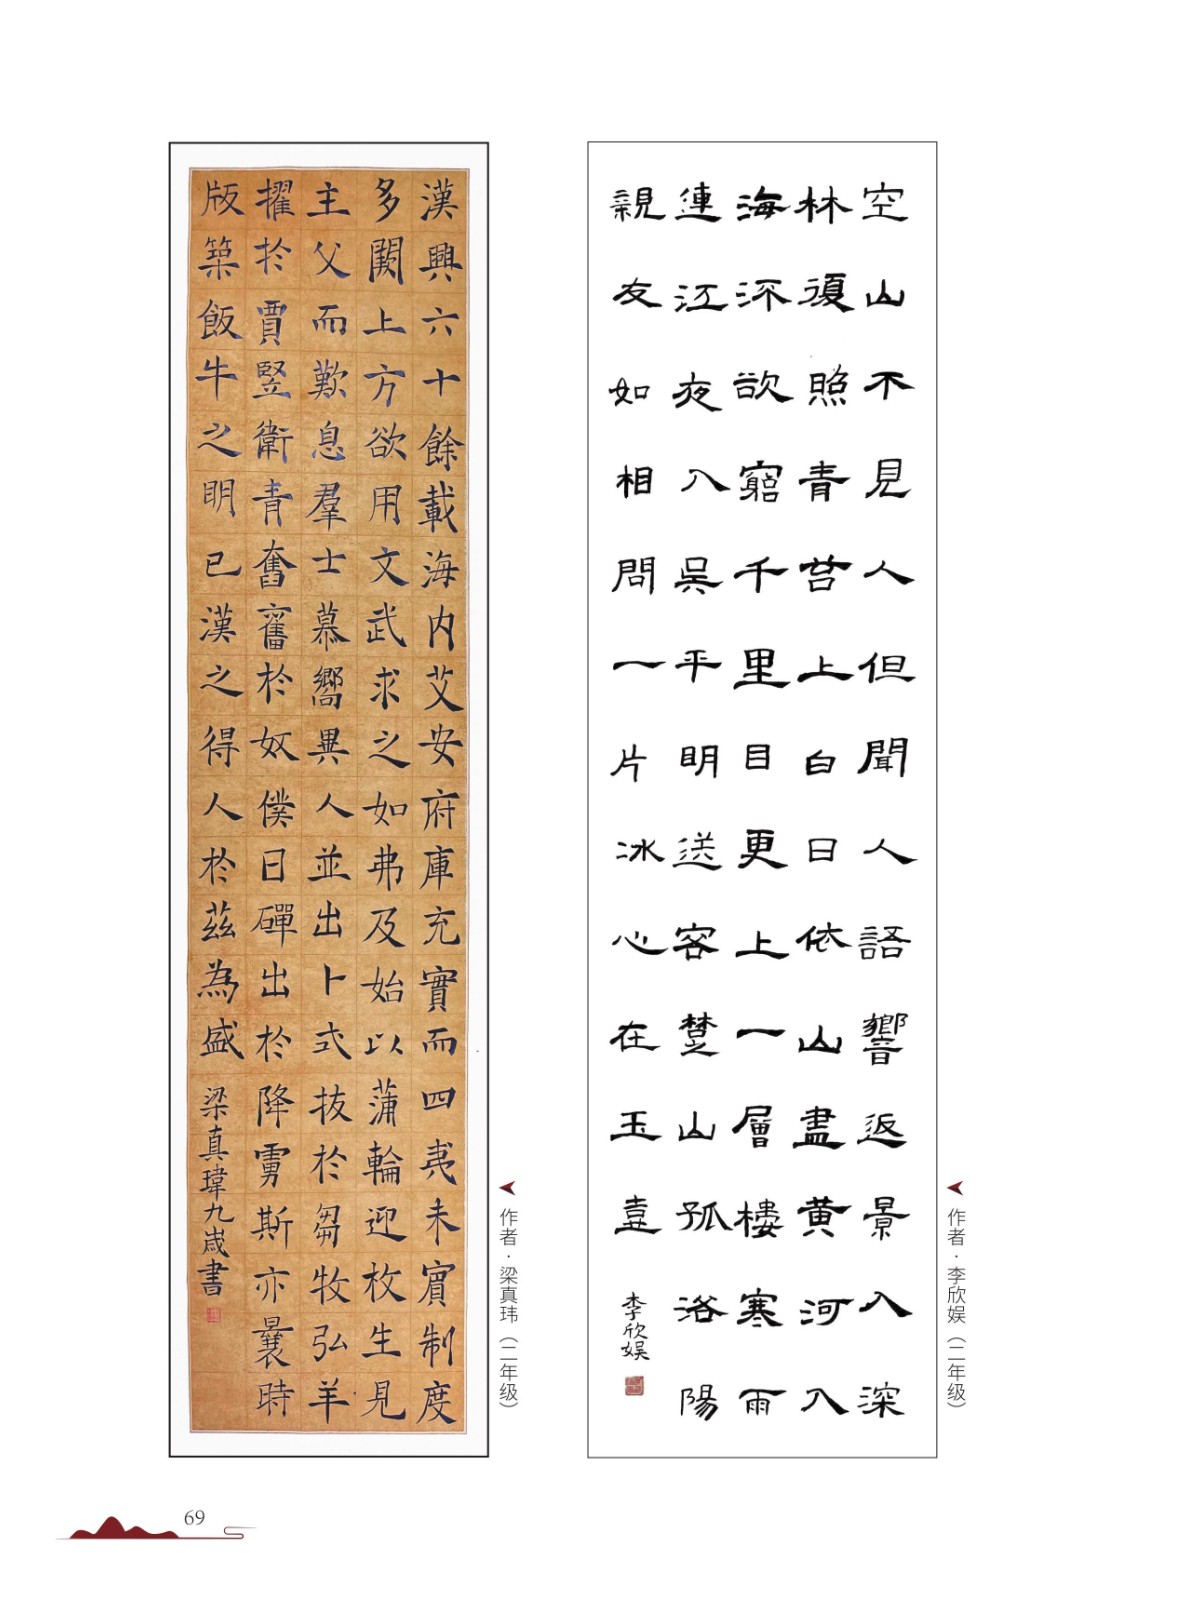 漢興六十餘載海内艾安府庫充實而四夷未賓制度
多闕上方欲用文武求之如弗及始以蒲輪迎枚生見
主父而歎息羣士慕嚮異人並出卜式拔於芻牧弘羊
擢於賈豎衛青奮舊於奴僕日磾出於降虜斯亦曩時
版築飯牛之明已漢之得人於茲為盛
梁真瑋九歲書
作者·梁真玮（二年级）
空山不見人但聞人語響返景入深
林復照青苔上白日依山盡黄河入
海流欲窮千里目更上一層樓寒雨
連江夜入吳平明送客楚山孤洛陽
親友如相問一片冰心在玉壺
李欣娱
作者·李欣娱（二年级）
69